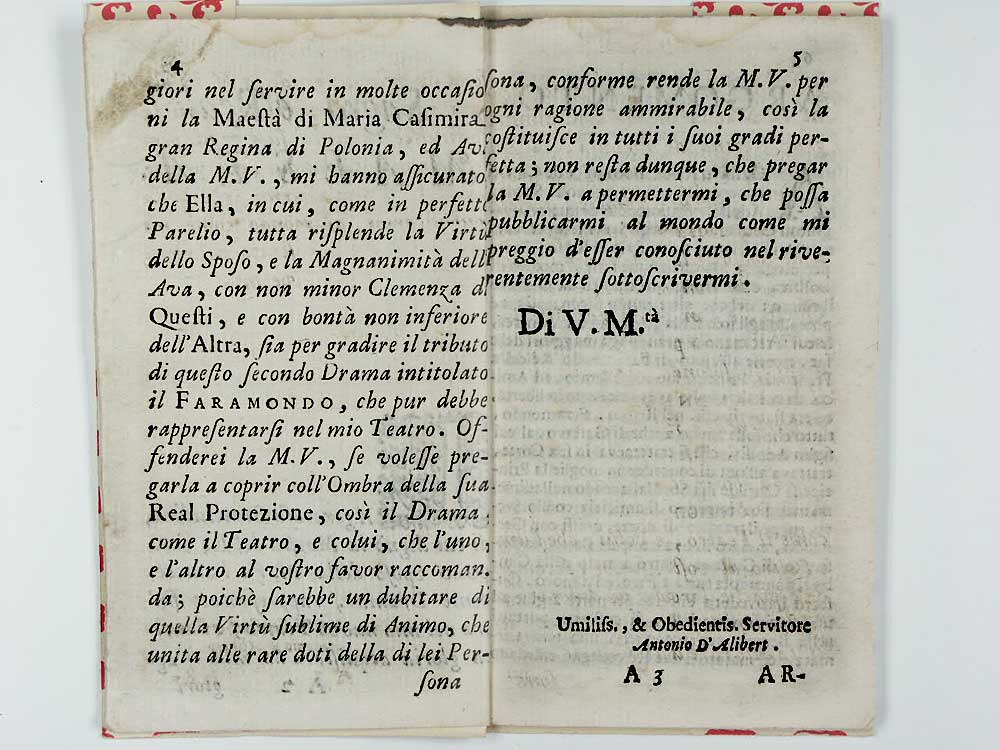 4
giori nel ſervire in molte occaſio
ni la Maeſtà di Maria Caſimira
gran Regina di Polonia, ed Av
della M. V., mi hanno aſſicurato
che Ella, in cui, come in perfett
Parelio, tutta riſplende la Virtù
dello Spoſo, e la Magnanimità dell
Ava, con non minor Clemenza d
Queſti, e con bontà non inferiore
dell'Altra, ſia per gradire il tributo
di queſto ſecondo Drama intitolato
il FARAMONDO, che pur debbe
rappreſentarſi nel mio Teatro. Of-
fenderei la M. V., ſe voleſſe pre-
garla a coprir coll'Ombra della ſua
Real Protezione, così il Drama,
come il Teatro, e colui, che l'uno,
e l'altro al voſtro favor raccoman.
da; poichè ſarebbe un dubitare di
quella Virtù ſublime di Animo, che
unita alle rare doti della di lei Per-
ſona
5
ſona, conforme rende la M. V. per
ogni ragione ammirabile, così la
coſtituiſce in tutti i ſuoi gradi per-
fetta; non reſta dunque, che pregar
la M. V. a permettermi, che poſſa
pubblicarmi al mondo come mi
preggio d'eſſer conoſciuto nel rive-
rentemente ſottoſcrivermi.
Di V. M.tà
Umiliſs., & Obedientis. Servitore
Antonio D'Alibert.
A 3 AR-